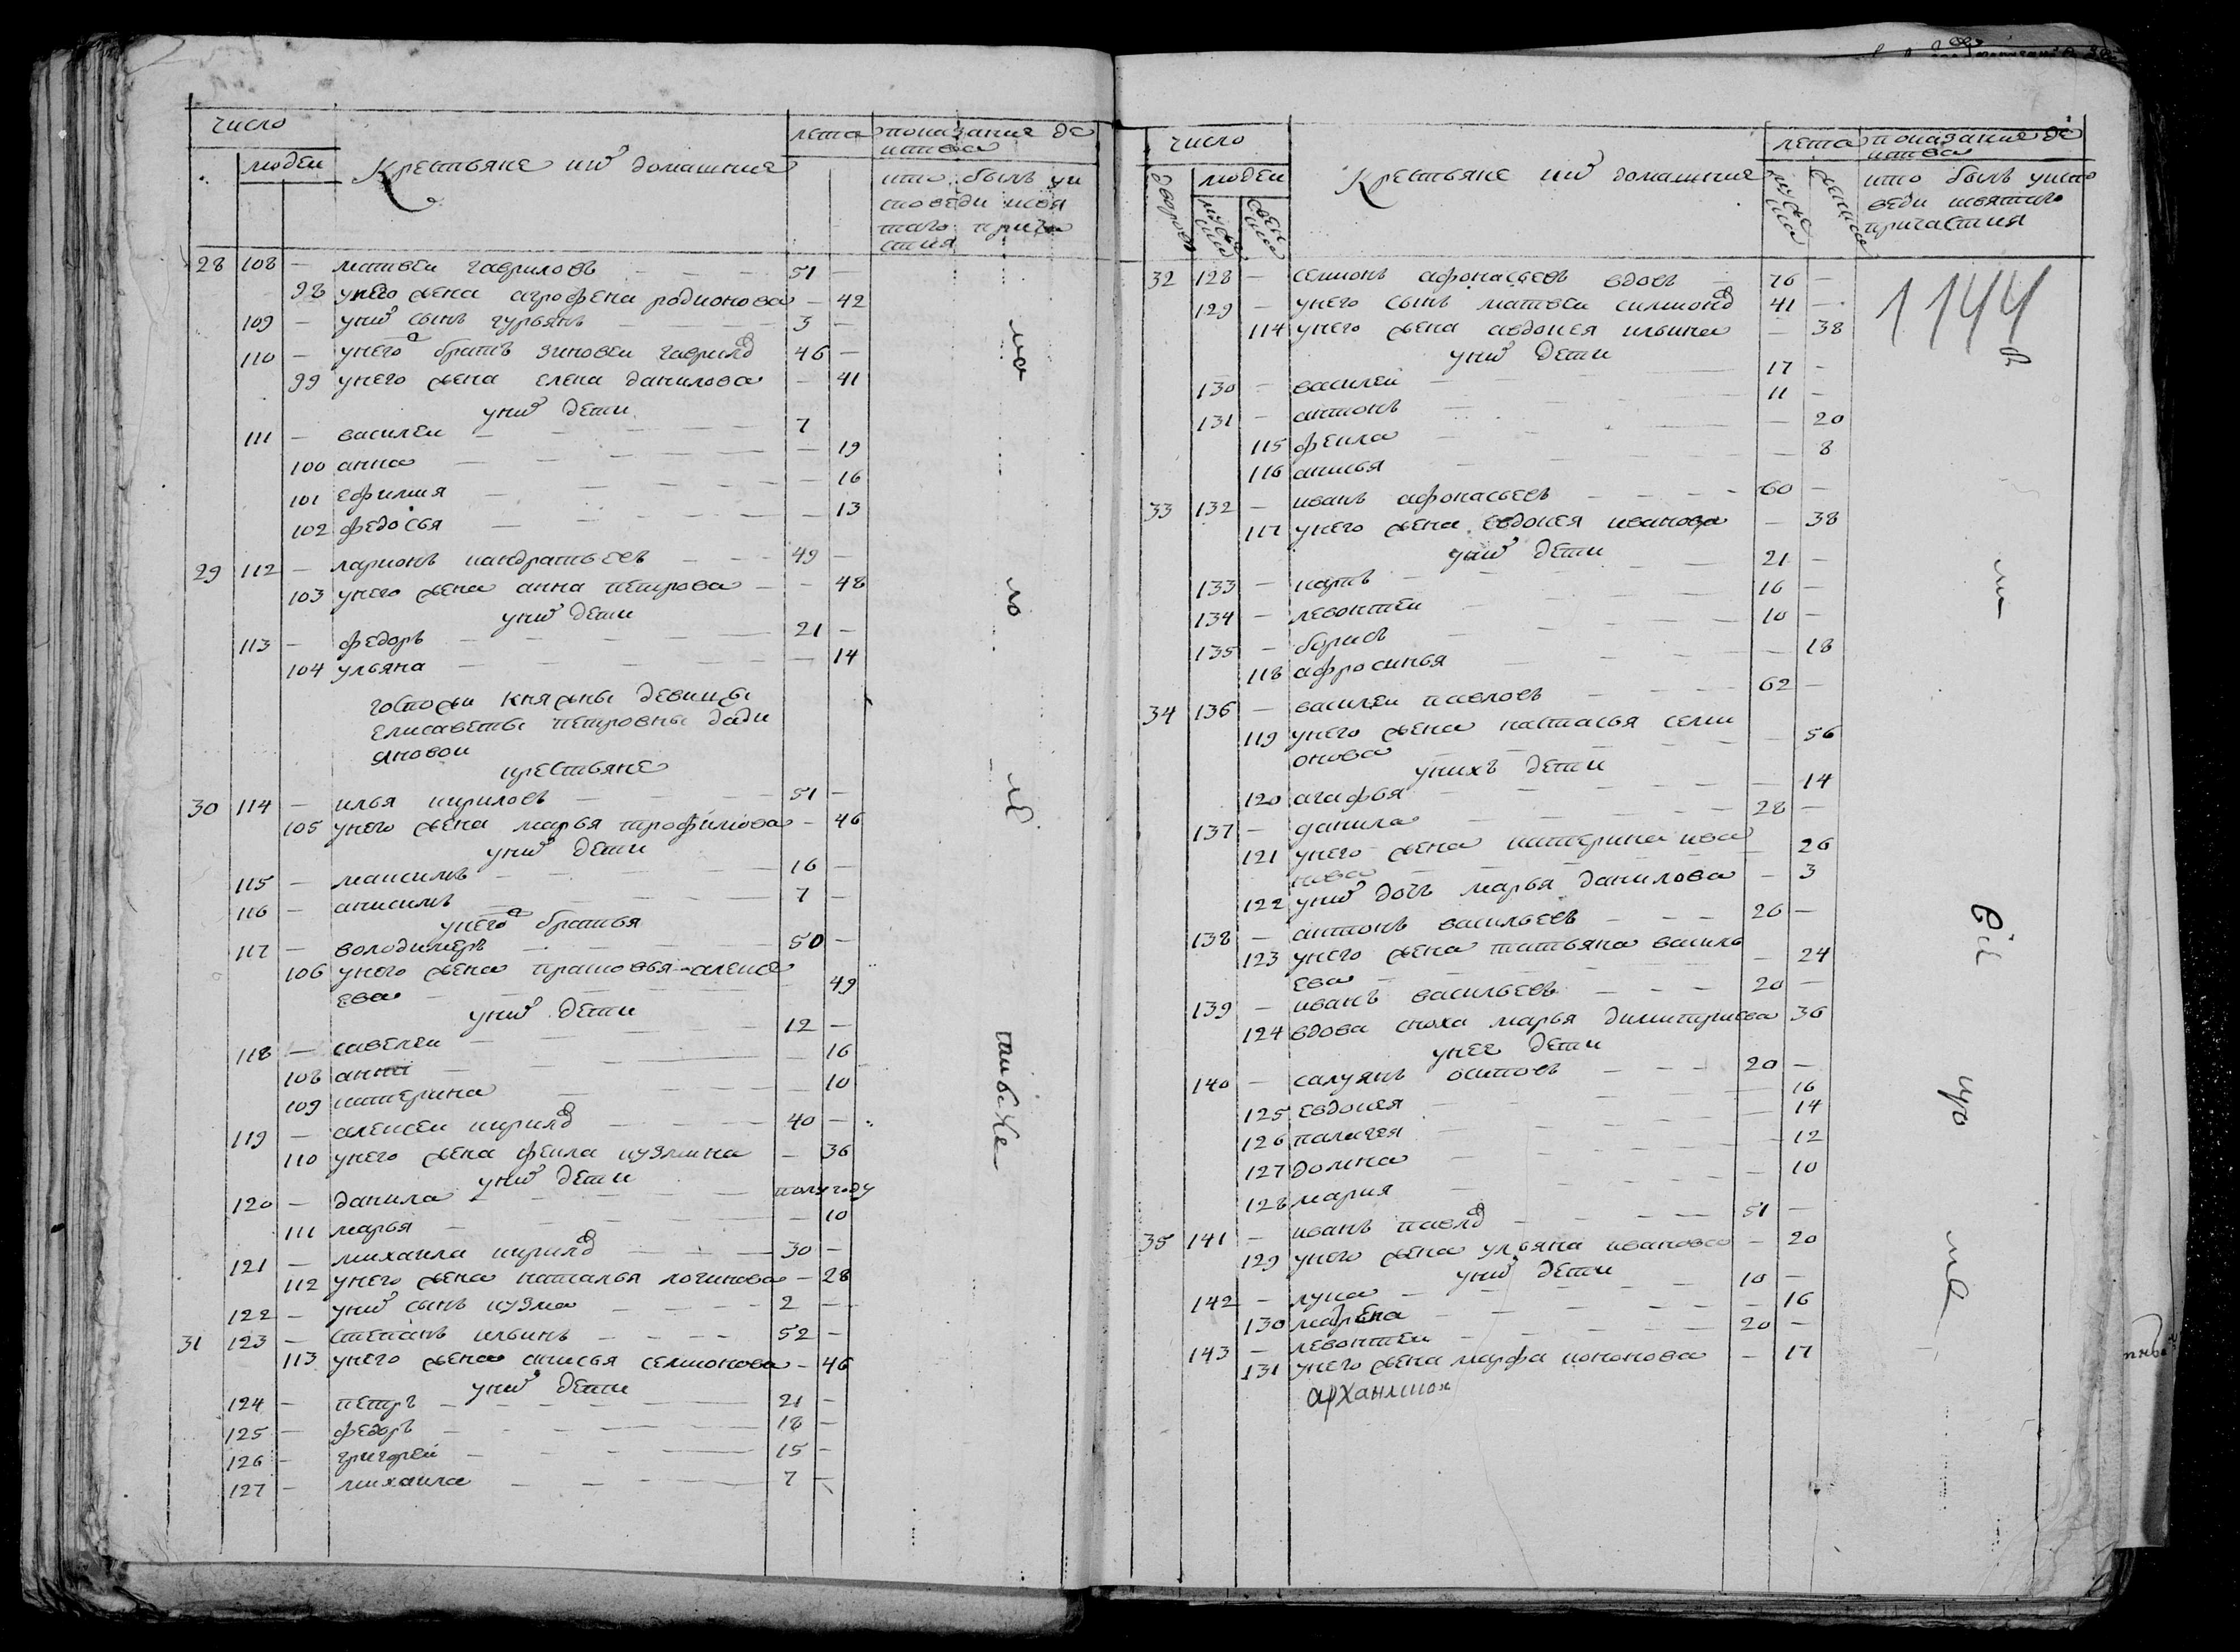 число
людеи
Крестьяне ихъ домашние
лета
показание де
иства
кто былъ уи
споведи исвя
таго прича
стия
28 108 — матвеи гавриловъ — 51 —
98 унего жена агрофена родионова — 42
109 — унихъ сынъ гурьянъ — 3 —
110 — унего братъ зиновеи гаврилов 46 —
99 унего жена елена данилова — 41
унихъ дети
111 — василеи — 7
100 анна — 19
101 ефимия — 16
102 федосья — 13
29 112 — ларионъ кандратьевъ — 49 —
103 унего жена анна петрова — 48
унихъ дети
113 — федоръ — 21 —
104 ульяна — 14
госпожи княжны девицы
елисаветы петровны дади
яновои
крестьяне
30 114 — илья кириловъ — 51 —
105 унего жена марья трофимова — 46
унихъ дети
115 — максимъ — 16 —
116 — анисимъ — 7 —
унего братья
117 — володимеръ — 50 —
106 унего жена прасковья алексе
ева — 49
унихъ дети
118 — савелеи — 12 —
108 анна — 16
109 катерина — 10
119 — алексеи кирилов — 40 —
110 унего жена феила кузмина — 36
унихъ дети
120 — данила — полугоду
111 марья — 10
121 — михаила кирилов — 30 —
112 унего жена наталья логинова — 28
122 — унихъ сынъ кузма — 2 —
31 123 — степанъ ильинъ — 52 —
113 унего жена анисья семионова — 46
унихъ дети
124 — петръ — 21 —
125 — федоръ — 18 —
126 — григореи — 15 —
127 — михаила — 7 —
число
дворовъ
людеи
мужеска
женска
Крестьяне ихъ домашние
лета
мужеска
женска
показание де
иства
кто былъ уиспо
веди исвятаго
причастия
1144
32 128 — семионъ афонасьевъ вдовъ — 76 —
129 — унего сынъ матвеи симионов 41 —
114 унего жена авдокея ильина — 38
унихъ дети
130 — василеи — 17 —
131 — антонъ — 11 —
115 феила — 20
116 анисья — 8
33 132 — иванъ афонасьевъ — 60 —
117 унего жена евдокея иванова — 38
унихъ дети
133 — карпъ — 21 —
134 — левонтеи — 16 —
135 — борисъ — 10 —
118 афросинья — 18
34 136 — василеи павловъ — 62 —
119 унего жена настасья семи
онова — 56
унихъ дети
120 агафья — 14
137 — данила — 28 —
121 унего жена катерина ива
нова — 26
122 унихъ дочь марья данилова — 3
138 — антонъ васильевъ — 26 —
123 унего жена татьяна василь
ева — 24
139 — иванъ васильевъ — 20 —
124 вдова сноха марья димитриева 36
унее дети
140 — салуянъ осиповъ — 20 —
125 евдокея — 16
126 палагея — 14
127 домна — 12
128 мария — 10
35 141 — иванъ павлов — 51 —
129 унего жена ульяна иванова — 20
унихъ дети
142 — лука — 10 —
130 марена — 16
143 — левонтеи — 20 —
131 унего жена марфа кононова — 17